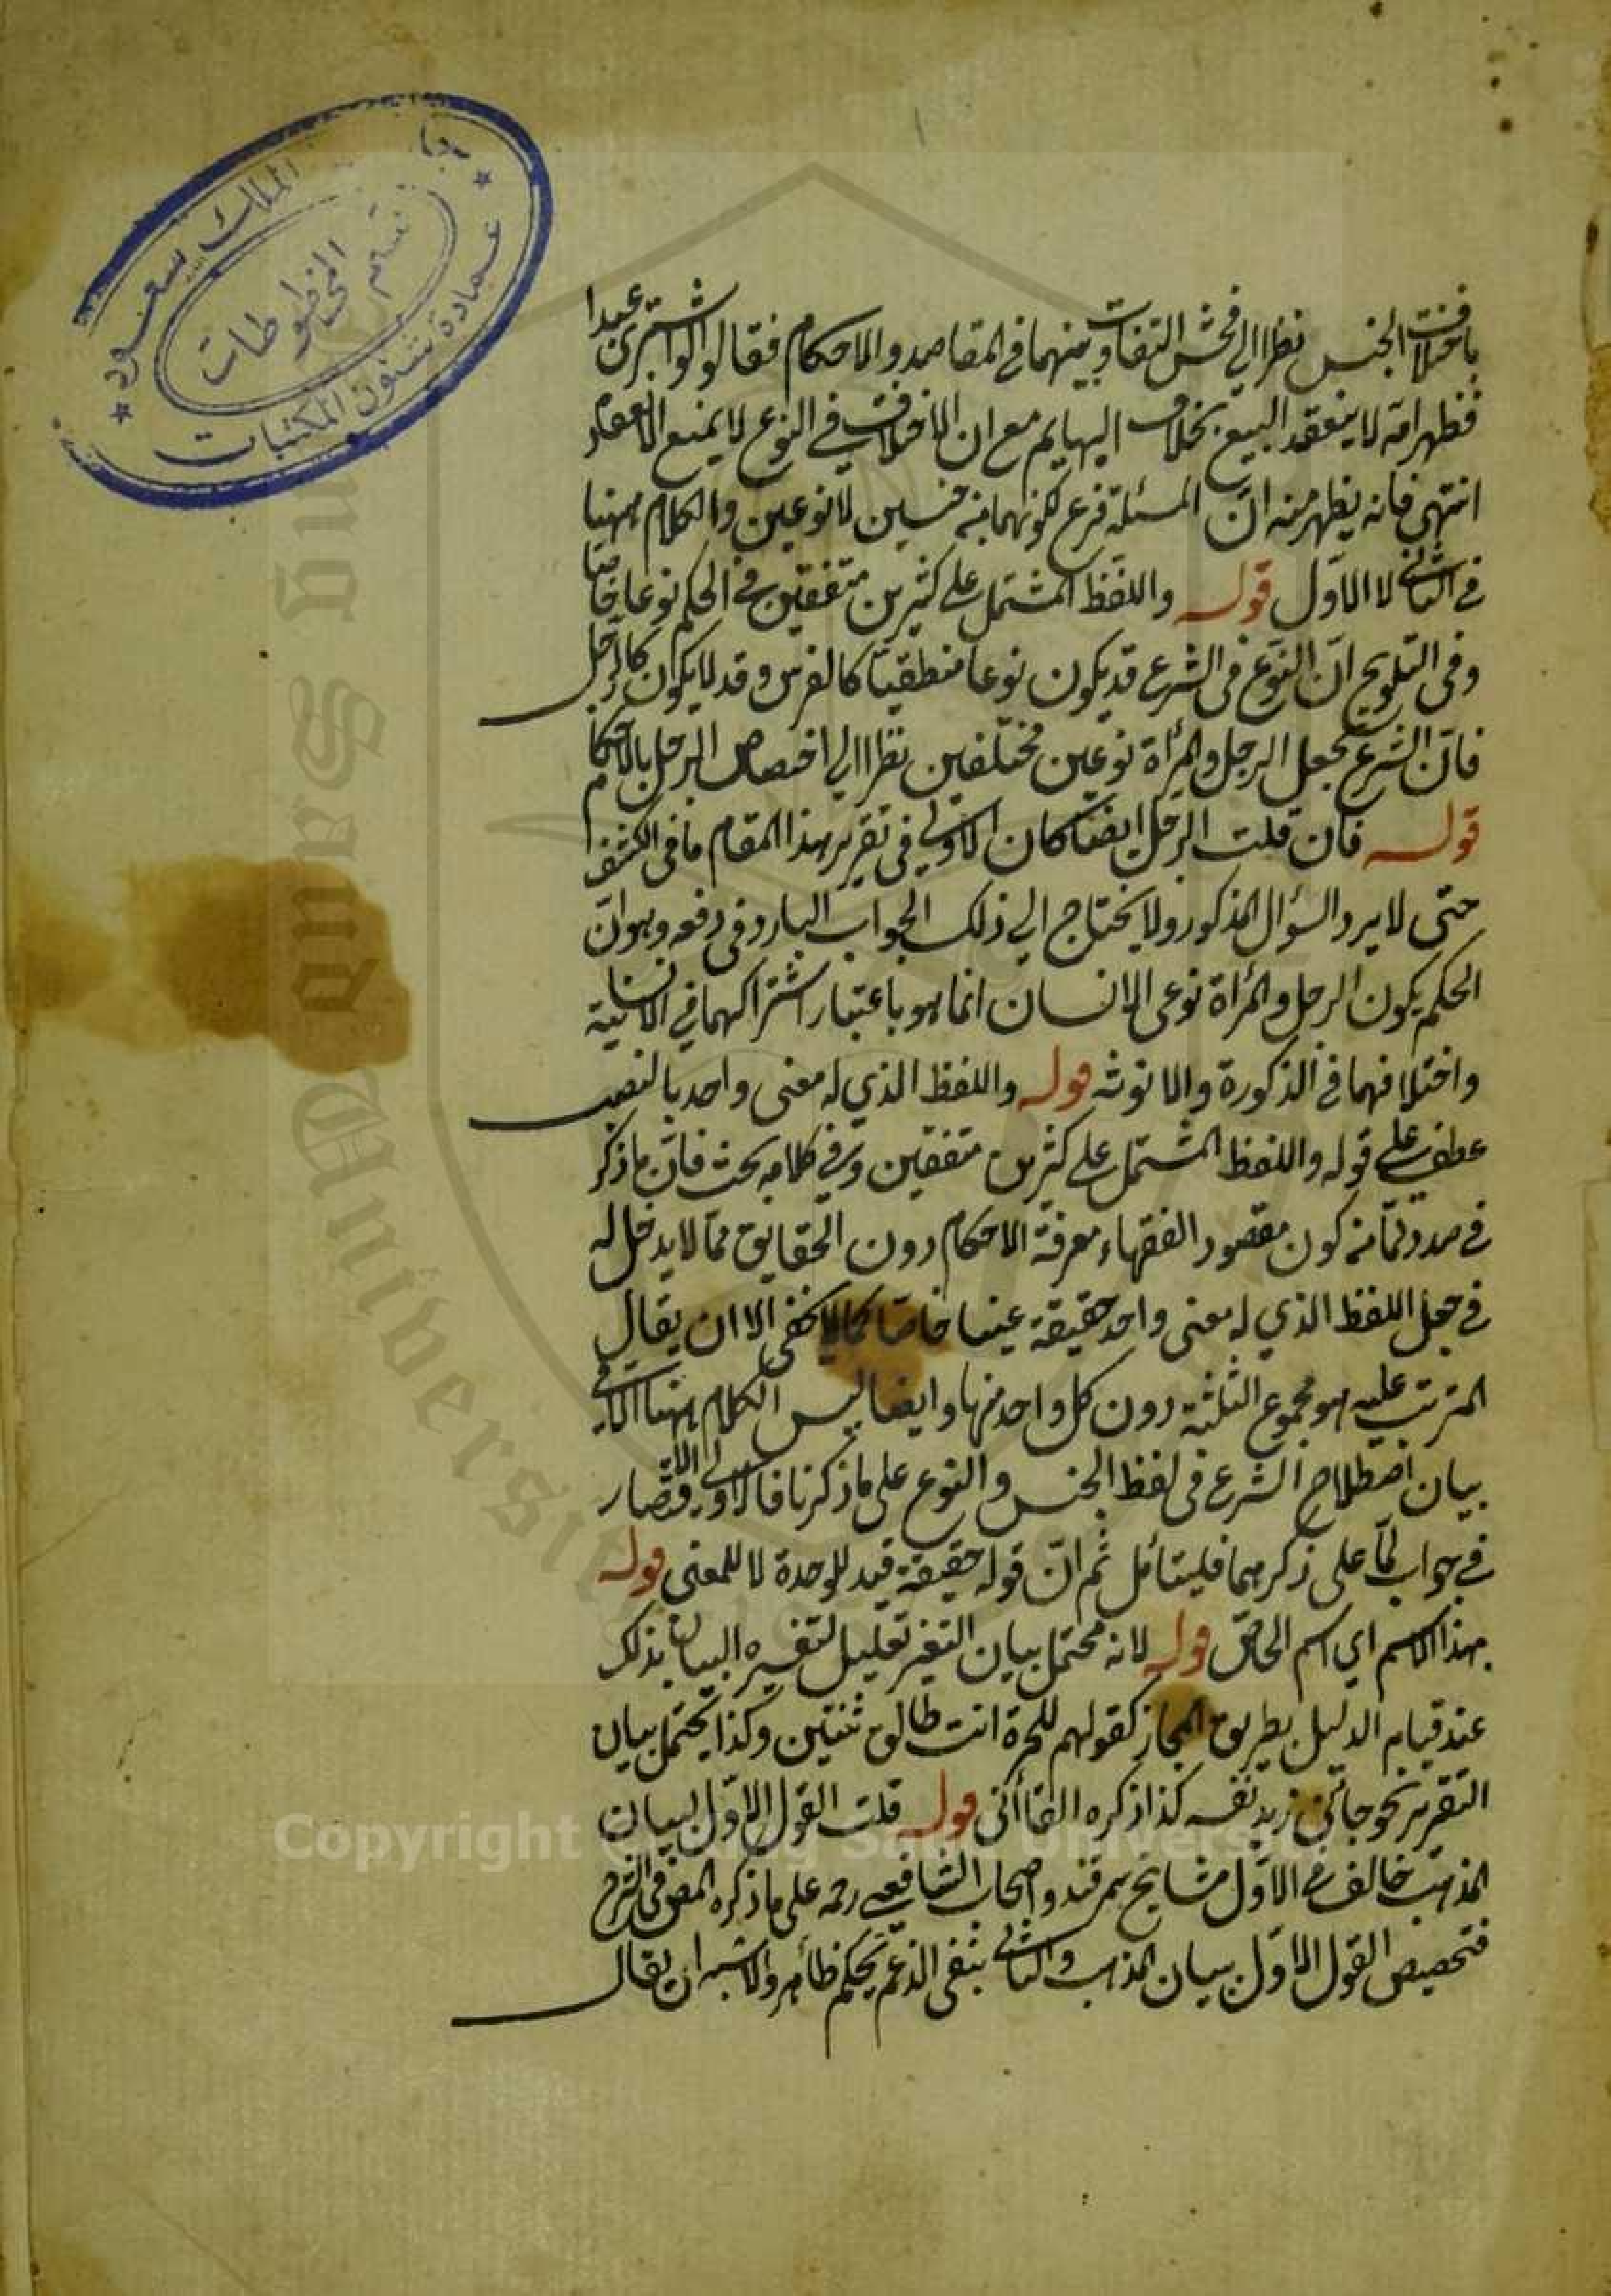 جامعة الملك سعود
قسم المخطوطات
عمادة شئون المكتبات
باختلاف الجنس نظرا الى فحش التفاوت بينهما في المقاصد والاحكام فقالوا لو اشترى عبدا
فظهر امة لا ينعقد البيع بخلاف البهايم مع ان الاختلاف في النوع لا يمنع الانعقاد
انتهى فانه يظهر منه ان المسئلة فرع لكونهما جنسين لا نوعين والكلام ههنا
في الثاني لا الاول قوله واللفظ المشتمل على كثيرين متفقين في الحكم نوعا خاصا
وفي التلويح ان النوع في الشرع قد يكون نوعا منطقيا كالفرس وقد لا يكون كالرجل
فان الشرع يجعل الرجل والمرأة نوعين مختلفين نظرا الى اختصاص الرجل بالاحكام
قوله فان قلت الرجل ايضا كان الاولى في تقرير هذا المقام ما في الكشف
حتى لا يرد السؤال المذكور ولا يحتاج الى ذلك الجواب البارد في دفعه وهو ان
الحكم بكون الرجل والمرأة نوعى الانسان انما هو باعتبار اشتراكهما في الانسانية
واختلافهما في الذكورة والانوثة قوله واللفظ الذي له معنى واحد بالنصب
عطف على قوله واللفظ المشتمل على كثيرين متفقين وفي كلامه بحث فان ما ذكر
في صدر لما من كون مقصود الفقهاء معرفة الاحكام دون الحقايق مما لا يدخل له
في جعل اللفظ الذي له معنى واحد حقيقة عينا خاصا كما لا يخفى الا ان يقال
المترتب عليه هو مجموع الثلثة دون كل واحد منها وايضا ليس الكلام ههنا الا في
بيان اصطلاح الشرع في لفظ الجنس والنوع على ما ذكرنا فالاولى الاقتصار
في جواب لما على ذكرهما فليتأمل ثم ان قوله حقيقة قيد للوحدة لا للمعنى قوله
بهذا الاسم اي اسم الخاص قوله لانه محتمل بيان التغير تعليل لتفسيره البيان بذلك
عند قيام الدليل بطريق المجاز كقولهم للحرة انت طالق ثنتين وكذا يحتمل بيان
التقرير نحو جائنى زيد نفسه كذا ذكره القاأنى قوله قلت القول الاول لبيان
المذهب خالف في الاول مشايخ سمرقند واصحاب الشافعي رحمه على ما ذكره المص في الشرح
فتخصيص القول الاول ببيان المذهب والثاني بنفى الزعم تحكم ظاهر والاشبه ان يقال
Copyright © King Saud University